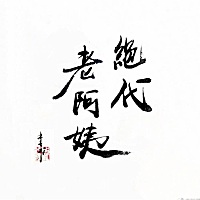 絕代
老阿姨